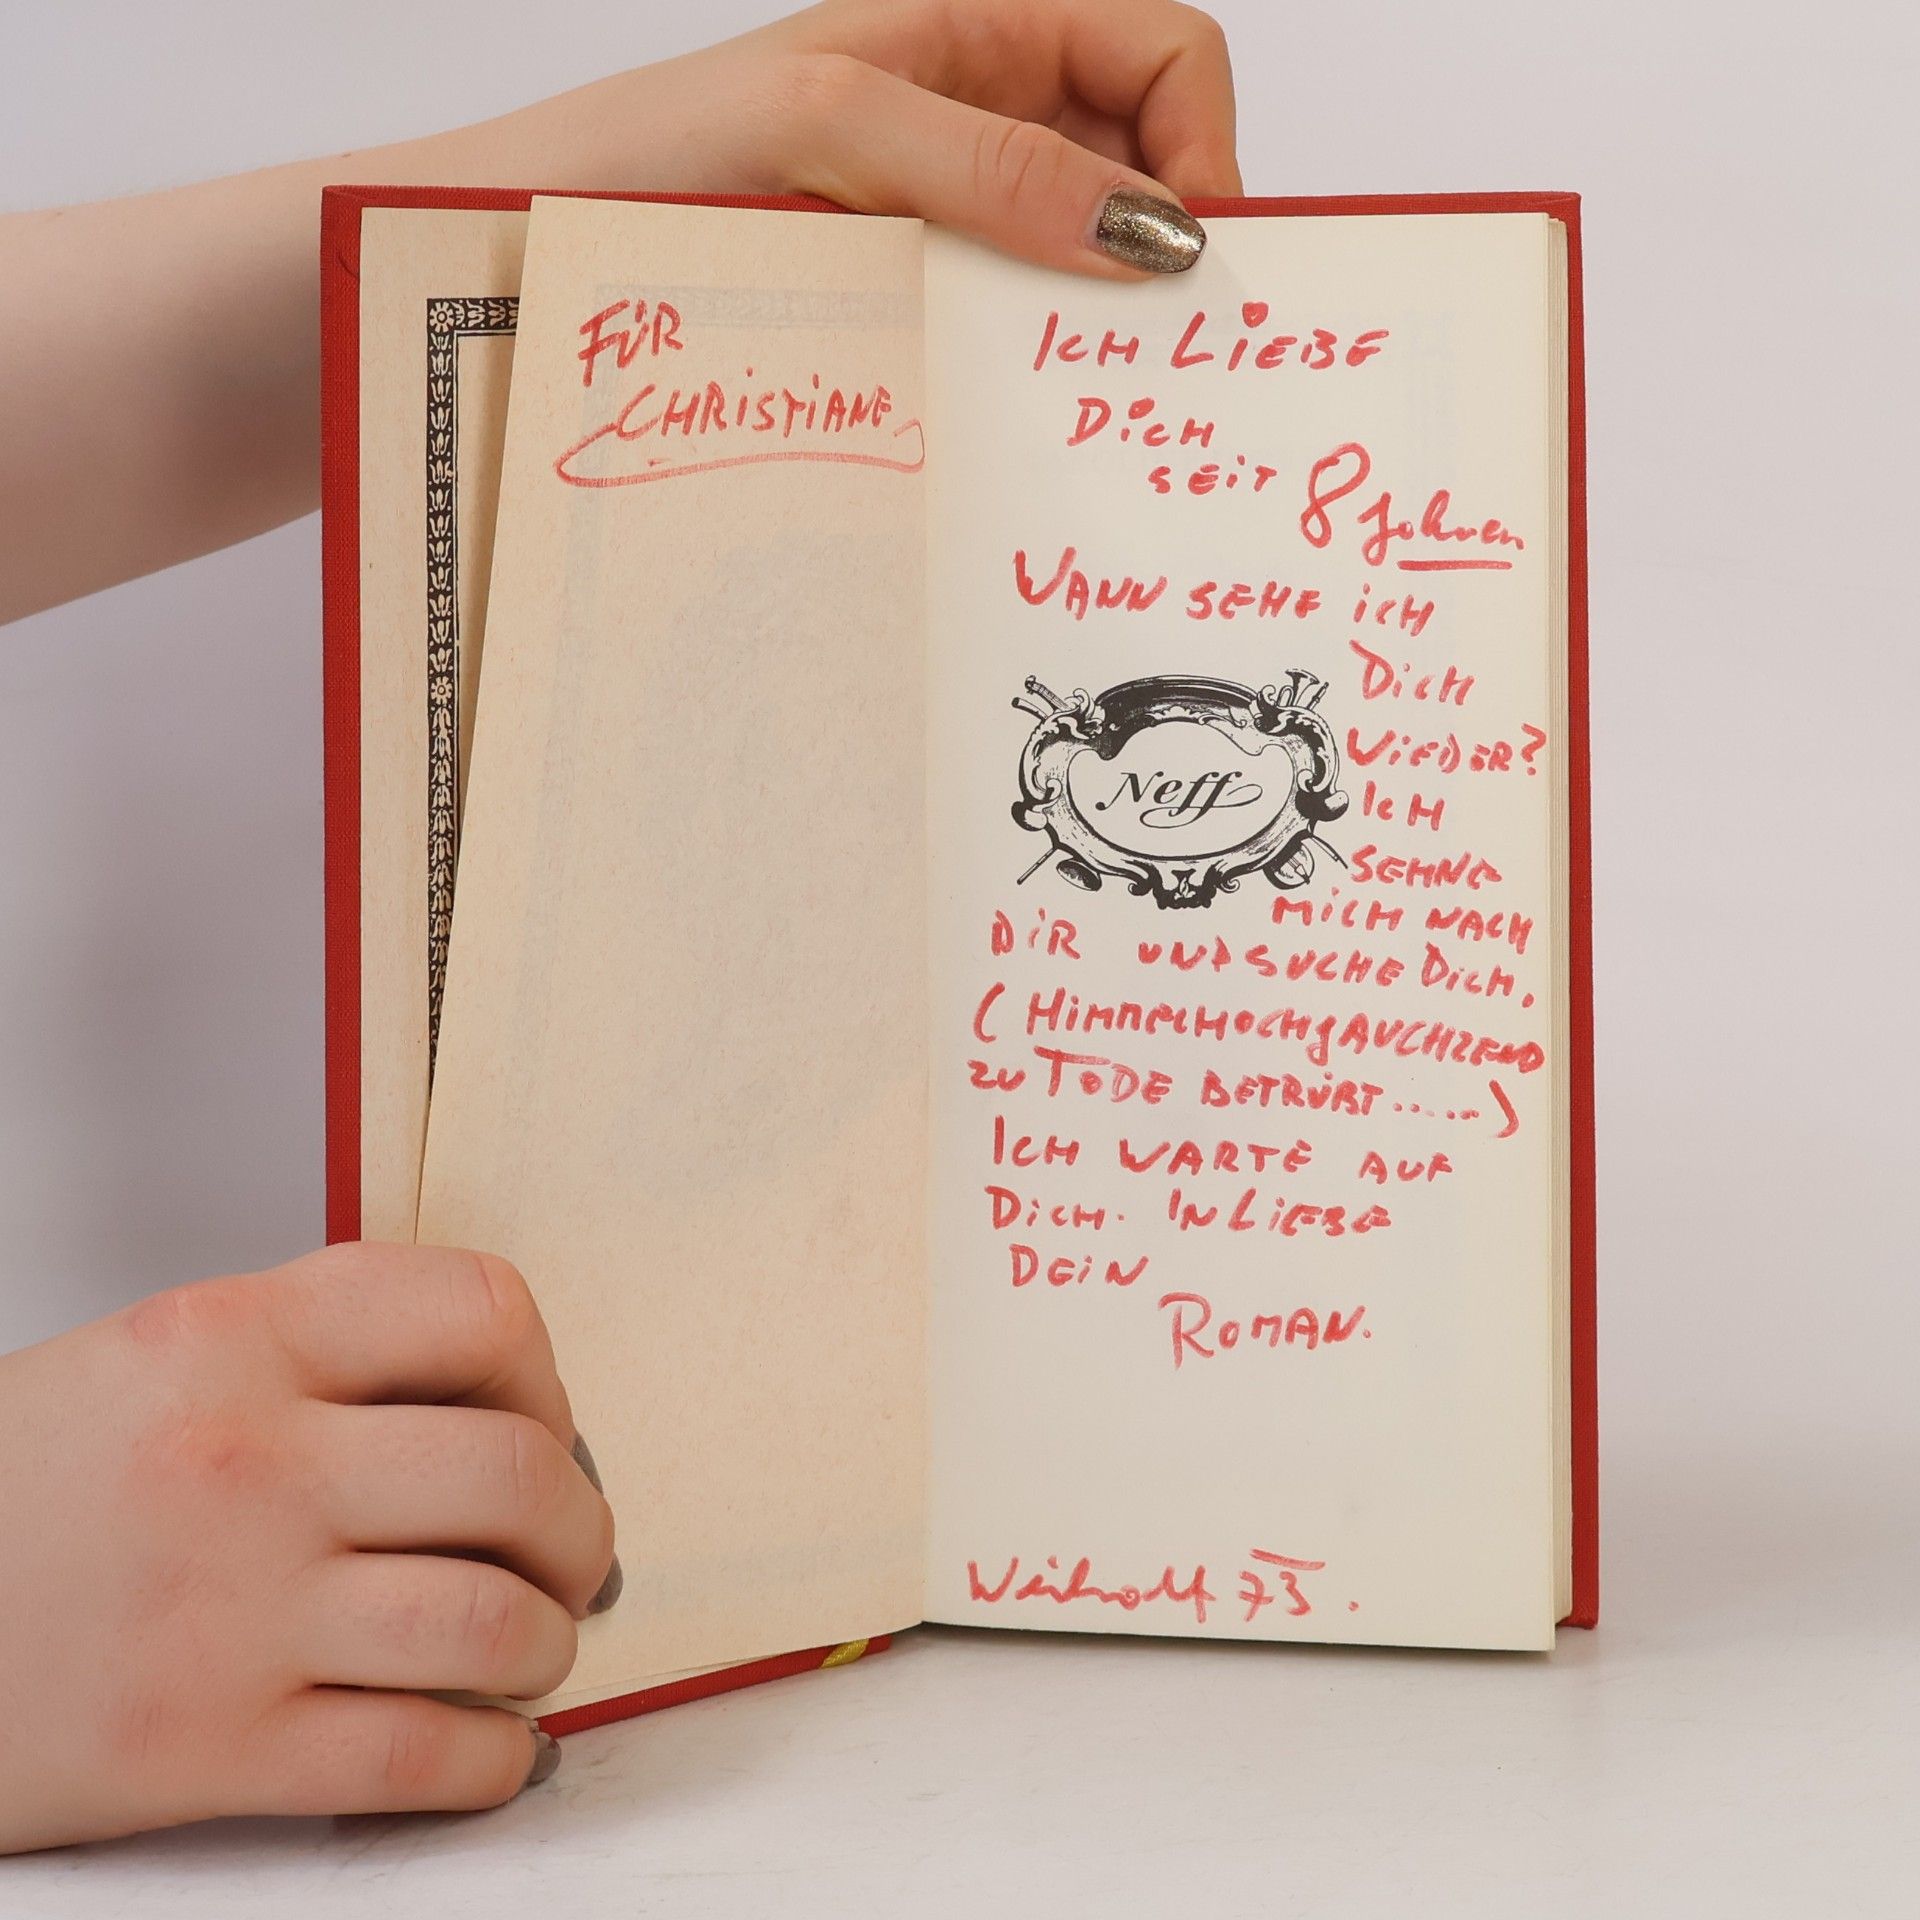 FÜR
CHRISTIANE
ICH LIEBE
DICH
SEIT 8 Jahren
WANN SEHE ICH
DICH
WIEDER?
Neff
ICH
SEHNE
MICH NACH
DIR UND SUCHE DICH.
(HIMMELHOCHJAUCHZEND
ZU TODE BETRÜBT.....)
ICH WARTE AUF
DICH. IN LIEBE
DEIN
ROMAN.
73.